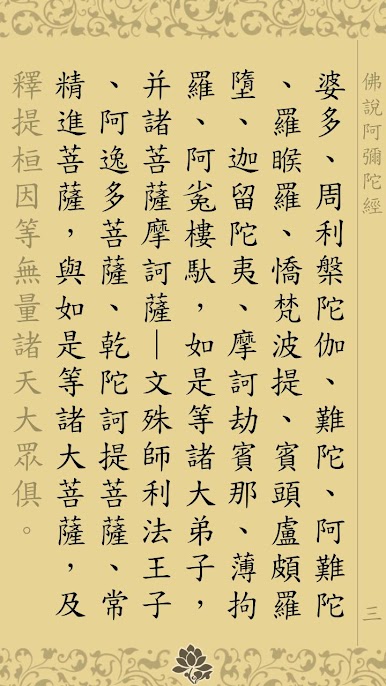 佛說阿彌陀經
三
婆多、周利槃陀伽、難陀、阿難陀
、羅睺羅、憍梵波提、賓頭盧頗羅
墮、迦留陀夷、摩訶劫賓那、薄拘
羅、阿㝹樓馱，如是等諸大弟子，
并諸菩薩摩訶薩—文殊師利法王子
、阿逸多菩薩、乾陀訶提菩薩、常
精進菩薩，與如是等諸大菩薩，及
釋提桓因等無量諸天大眾俱。